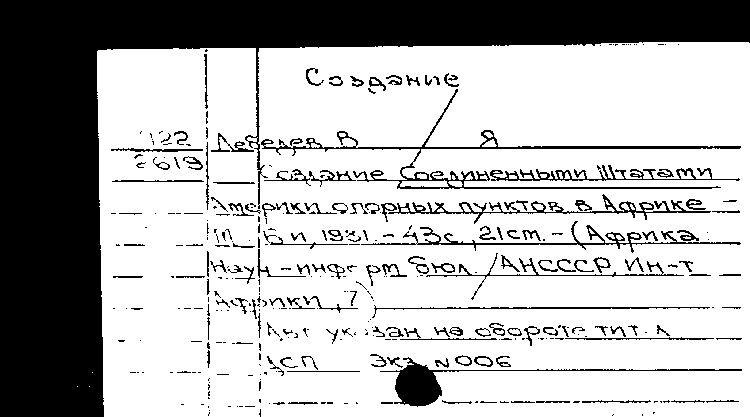 Создание
122 Лебедев, В Я
2619 Создание Соединенными Штатами
Америки опорных пунктов в Африке -
М Б и, 1981. - 43с, 21cm. - (Африка
Науч - информ бюл / АНСССР, Ин-т
Африки, 7)
Авт указан на обороте тит. л
ДСП Экз N006